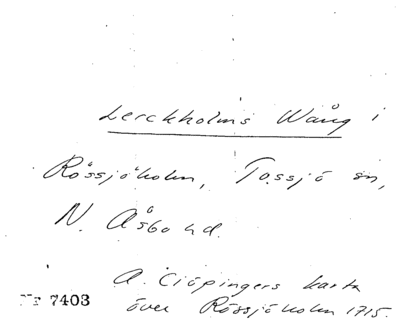 Lerckholms Wång i
Rössjöholm, Tossjö sn,
N. Åsbo hd.
A. Ciöpingers karta
över Rössjöholm 1715.
Nr 7403